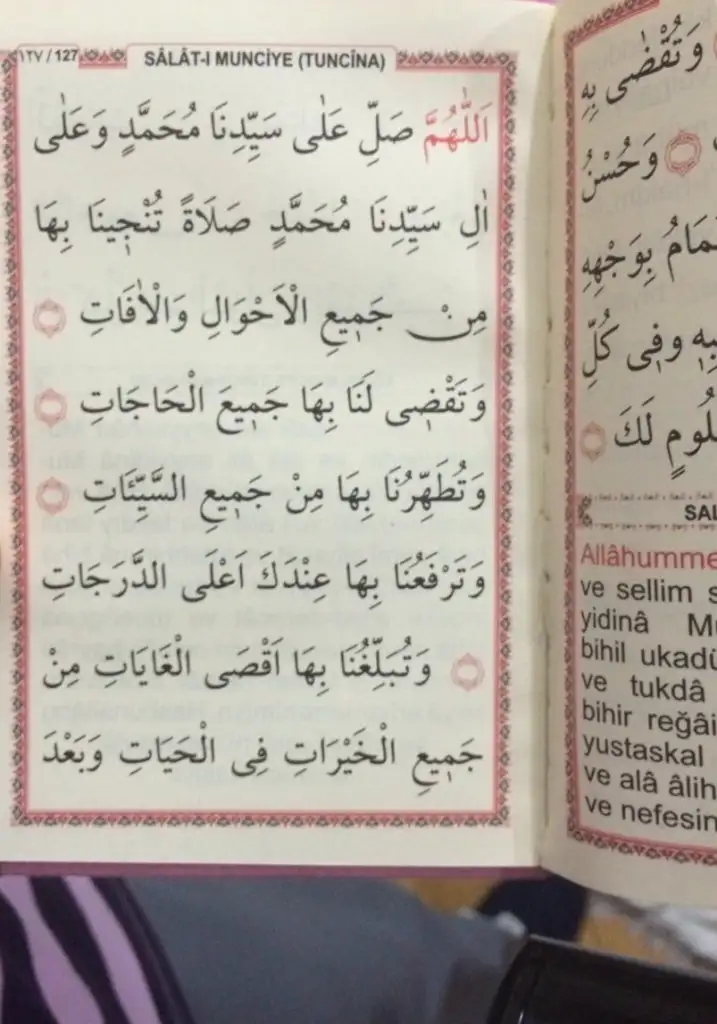 ١٢٧ / 127
SÂLÂT-I MUNCİYE (TUNCÎNA)
اَللّٰهُمَّ صَلِّ عَلٰى سَيِّدِنَا مُحَمَّدٍ وَعَلٰى
اٰلِ سَيِّدِنَا مُحَمَّدٍ صَلَاةً تُنْجٖينَا بِهَا
مِنْ جَمٖيعِ الْاَحْوَالِ وَالْاٰفَاتِ
وَتَقْضٖى لَنَا بِهَا جَمٖيعَ الْحَاجَاتِ
وَتُطَهِّرُنَا بِهَا مِنْ جَمٖيعِ السَّيِّئَاتِ
وَتَرْفَعُنَا بِهَا عِنْدَكَ اَعْلَى الدَّرَجَاتِ
وَتُبَلِّغُنَا بِهَا اَقْصَى الْغَايَاتِ مِنْ
جَمٖيعِ الْخَيْرَاتِ فِى الْحَيَاتِ وَبَعْدَ
وَتُقْضٰى بِهِ
وَحُسْنُ
بِوَجْهِهِ
وَفٖى كُلِّ
لَكَ
Allâhumme
ve sellim
yidinâ
bihil
ve tukdâ
bihir
yustaskal
ve alâ
ve